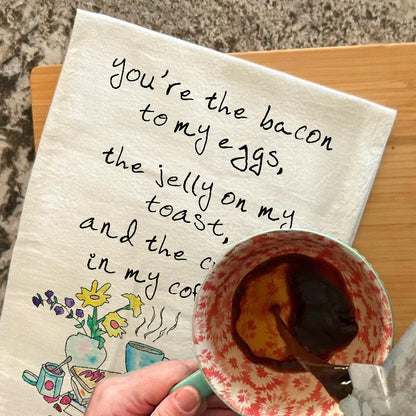 you're the bacon
to my eggs,
the jelly on my
toast,
and the
in my